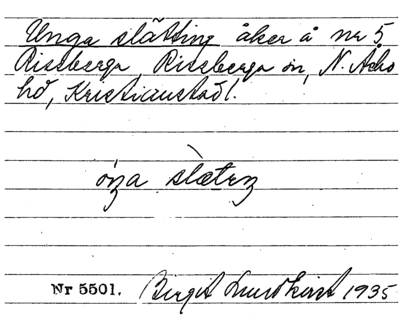 Unga slätting åker å nr 5
Rissberga, Rissberga sn, N. Åsbo
hd, Kristianstadl.
Nr 5501. Birgit Lundkvist 1935